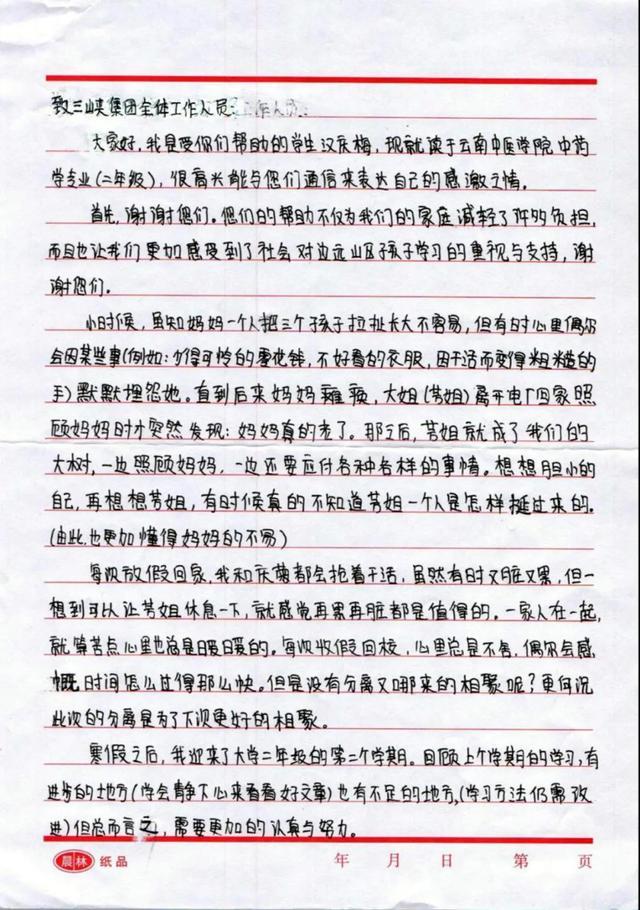 致三峡集团全体工作人员:
大家好,我是受你们帮助的学生汉庆梅,现就读于云南中医学院中药
学专业(二年级),很高兴能与您们通信来表达自己的感激之情。
首先,谢谢您们。您们的帮助不仅为我们的家庭减轻了许多负担,
而且也让我们更加感受到了社会对边远山区孩子学习的重视与支持,谢
谢您们。
小时候,虽知妈妈一个人把三个孩子拉扯长大不容易,但有时心里偶尔
会因某些事(例如:少得可怜的零花钱,不好看的衣服,因干活而变得粗糙的
手)默默埋怨她。直到后来妈妈瘫痪,大姐(芳姐)离开电厂回家照
顾妈妈时才突然发现:妈妈真的老了。那之后,芳姐就成了我们的
大树,一边照顾妈妈,一边还要应付各种各样的事情。想想胆小的
自己,再想想芳姐,有时候真的不知道芳姐一个人是怎样挺过来的。
(由此,也更加懂得妈妈的不易)
每次放假回家,我和庆菊都会抢着干活,虽然有时又脏又累,但一
想到可以让芳姐休息一下,就感觉再累再脏都是值得的。一家人在一起,
就算苦点心里也总是暖暖的。每次收假回校,心里总是不舍,偶尔会感
慨时间怎么过得那么快。但是没有分离又哪来的相聚呢?更何况
此次的分离是为了下次更好的相聚。
寒假之后,我迎来了大学二年级的第二个学期。回顾上个学期的学习,有
进步的地方(学会静下心来看看好文章)也有不足的地方,(学习方法仍需改
进)但总而言之,需要更加的认真与努力。
晨林 纸品 年 月 日 第 页